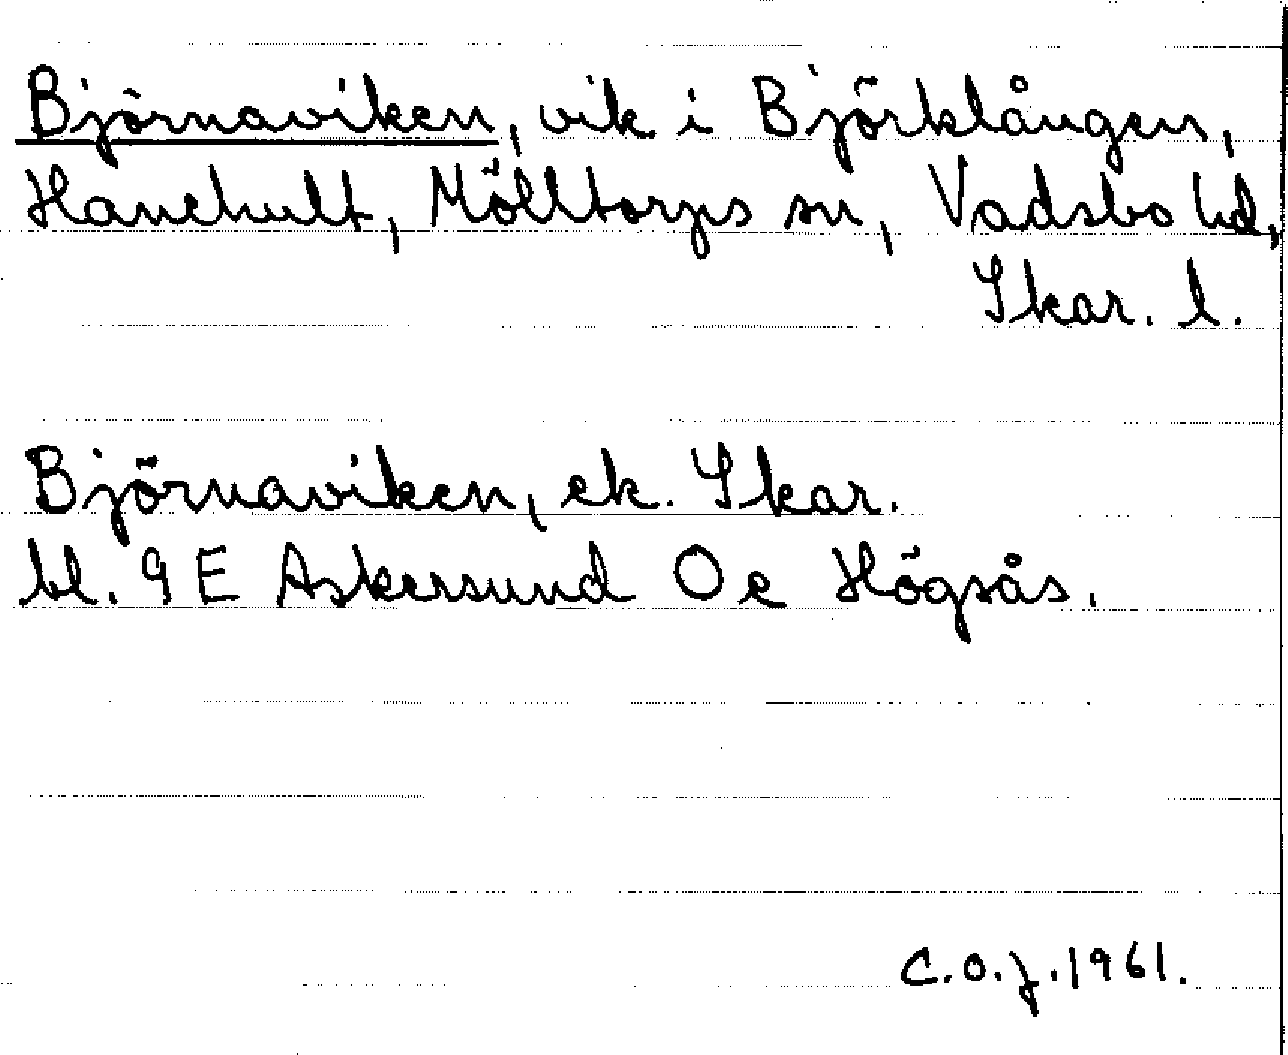 Björnaviken, vik i Björklången,
Hanehult, Mölltorps sn, Vadsbo hd,
Skar. l.
Björnaviken, ek. Skar.
bl. 9 E Askersund O e Högsås.
C.O.J. 1961.